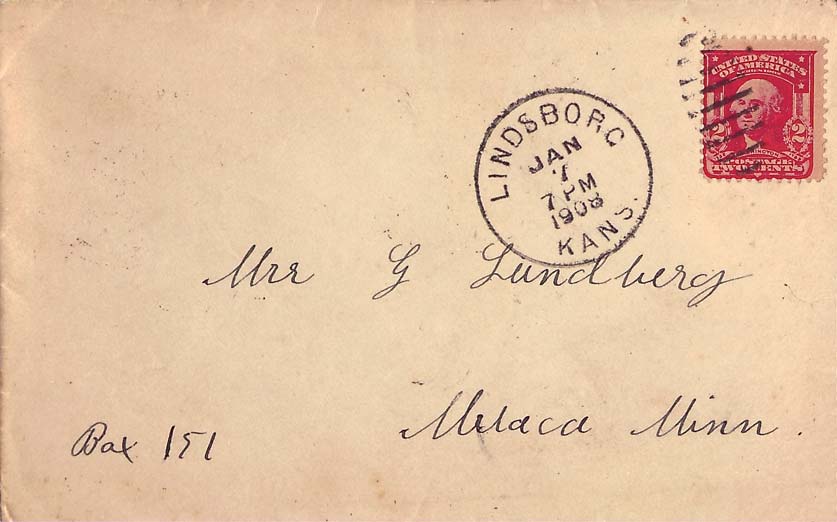 UNITED STATES
OF AMERICA
2 2
WASHINGTON
POSTAGE
TWO CENTS
LINDSBORG
JAN
7
7 PM
1908
KANS.
Mrr G Lundberg
Milaca Minn.
Box 151